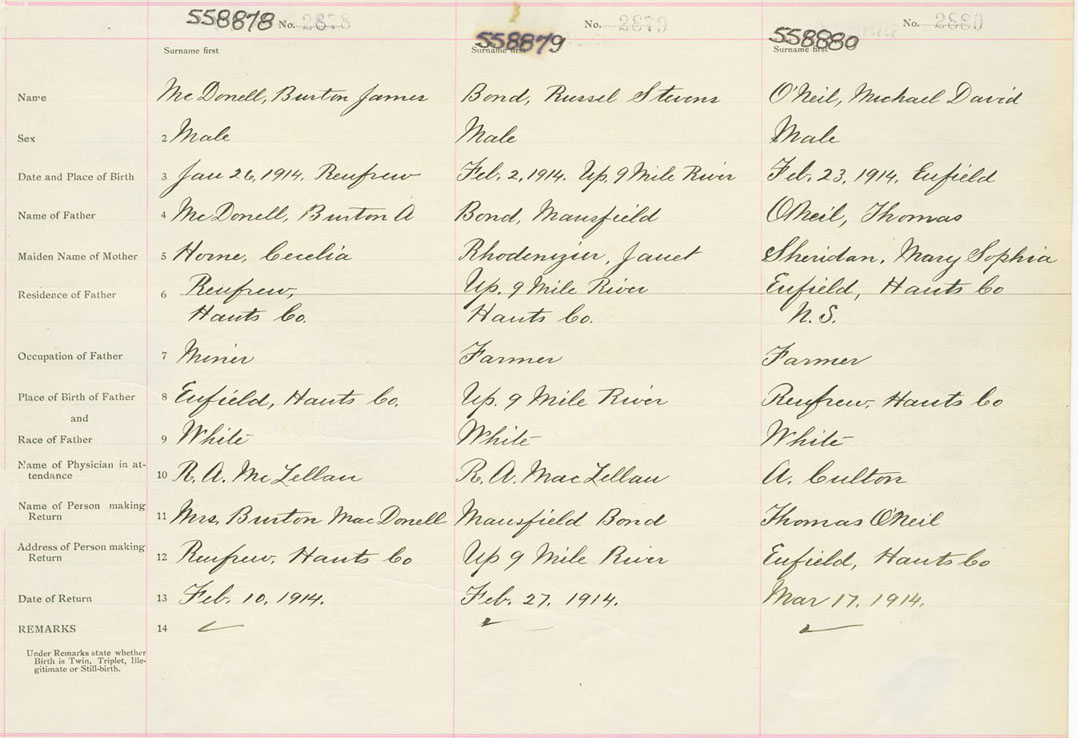 558878 No. 2878 558879 No. 2879 558880 No. 2880
Surname first Surname first Surname first
Name McDonell, Burton James Bond, Russel Stevens O'Neil, Michael David
Sex 2 Male Male Male
Date and Place of Birth 3 Jan 26, 1914. Renfrew Feb. 2, 1914. Up. 9 Mile River Feb. 23, 1914, Enfield
Name of Father 4 McDonell, Burton A Bond, Mansfield O'Neil, Thomas
Maiden Name of Mother 5 Horne, Cecelia Rhodenizer, Janet Sheridan, Mary Sophia
Residence of Father 6 Renfrew, Up. 9 Mile River Enfield, Hants Co
Hants Co. Hants Co. N.S.
Occupation of Father 7 Miner Farmer Farmer
Place of Birth of Father 8 Enfield, Hants Co. Up. 9 Mile River Renfrew, Hants Co
and
Race of Father 9 White White White
Name of Physician in at-
tendance 10 R. A. McLellan R. A. MacLellan A. Culton
Name of Person making
Return 11 Mrs. Burton MacDonell Mansfield Bond Thomas O'Neil
Address of Person making
Return 12 Renfrew, Hants Co Up 9 Mile River Enfield, Hants Co
Date of Return 13 Feb. 10, 1914. Feb. 27, 1914. Mar 17, 1914.
REMARKS 14
Under Remarks state whether
Birth is Twin, Triplet, Ille-
gitimate or Still-birth.